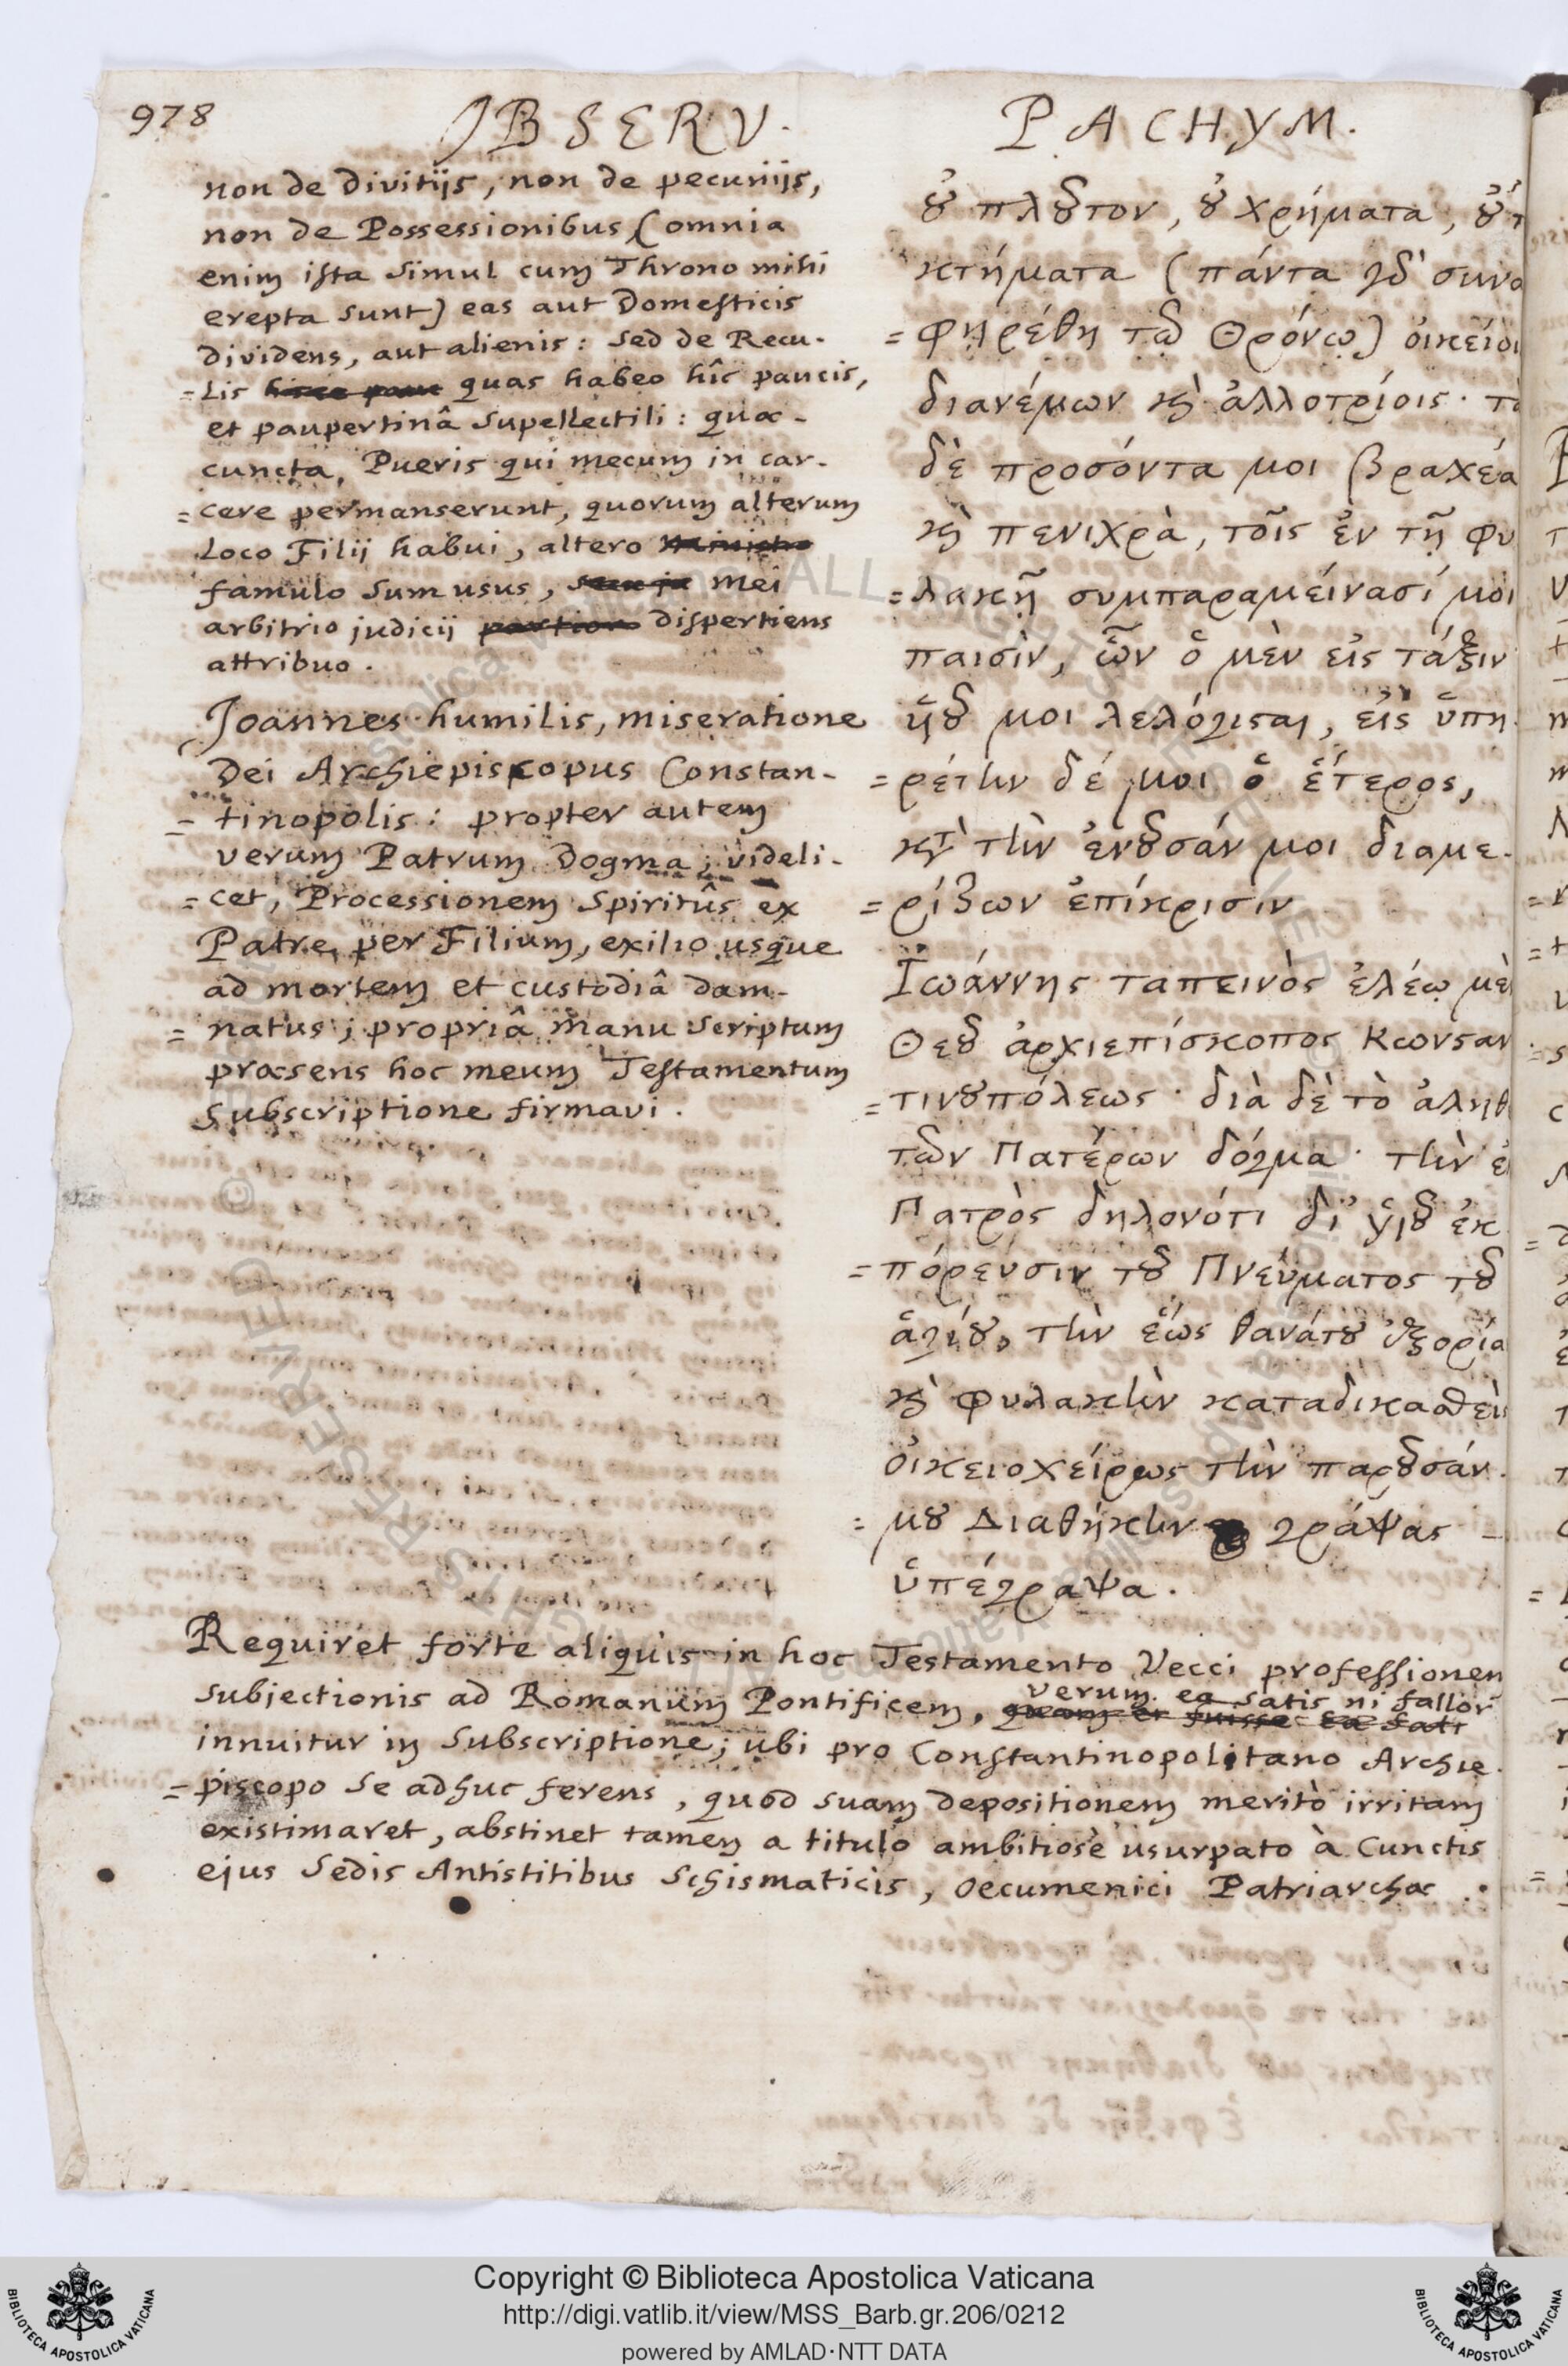 978
OBSERV.
PACHYM.
non de Divitijs, non de pecunijs,
non de Possessionibus (omnia
enim ista simul cum Throno mihi
erepta sunt) eas aut Domesticis
dividens, aut alienis: sed de Recu-
=lis quas habeo hîc paucis,
et paupertinâ Supellectili: quæ-
cuncta, Pueris qui mecum in car-
=cere permanserunt, quorum alterum
loco Filij habui, altero
famulo sum usus, mei
arbitrio judicij dispertiens
attribuo.
Joannes humilis, miseratione
Dei Archiepiscopus Constan-
=tinopolis: propter autem
verum Patrum Dogma; videli-
=cet, Processionem Spiritûs ex
Patre, per Filium, exilio usque
ad mortem et custodiâ dam-
=natus; propriâ manu scriptum
præsens hoc meum Testamentum
subscriptione firmavi.
ȣ̓ πλȣ͂τον, ȣ̓ χρήματα,
κτήματα (πάντα γδ' συνα
=φῃρέθη τῶ Θρόνῳ) οἰκείοι
διανέμων κỳ ἀλλοτρίοις· τὰ
δὲ προσόντα μοι βραχέα
κỳ πενιχρὰ, τοῖς ἐν τῇ φυ
=λακῇ συμπαραμείνασί μοι
παισὶν, ὧν ὁ μὲν εἰς τάξιν
ὑȣ͂ μοι λελόγισαι, εἰς ὑπη-
=ρέτην δέ μοι ὁ ἕτερος,
κτ̀ τὴν ἐνȣ͂σάν μοι διαμε-
=ρίζων ἐπίκρισιν
Ἰωάννης ταπεινὸς ἐλέῳ μὲ
Θεȣ͂ ἀρχιεπίσκοπος Κωνσαν
=τινȣπόλεως· διὰ δὲ τὸ ἀληθ
τῶν Πατέρων δόγμα· τὴν ἐ
Πατρὸς δηλονότι δι' ὑιȣ͂ ἐκ
=πόρευσιν τȣ͂ Πνεύματος τȣ͂
ἁγίȣ, τὴν ἕως θανάτȣ ἐξορία
κỳ φυλακὴν καταδικασθεὶς
οἰκειοχείρως τὴν παρȣ͂σάν-
=μȣ Διαθήκην γράψας -
ὑπέγραψα.
Requiret forte aliquis in hoc Testamento Vecci professionem
subjectionis ad Romanum Pontificem, verum ea satis ni fallor
innuitur in Subscriptione; ubi pro Constantinopolitano Archie-
=piscopo se adhuc ferens, quod suam depositionem meritò irritam
existimaret, abstinet tamen a titulo ambitiosè usurpato à Cunctis
ejus Sedis Antistitibus Schismaticis, Oecumenici Patriarchæ.
Copyright © Biblioteca Apostolica Vaticana
http://digi.vatlib.it/view/MSS_Barb.gr.206/0212
powered by AMLAD·NTT DATA
BIBLIOTECA APOSTOLICA VATICANA
BIBLIOTECA APOSTOLICA VATICANA